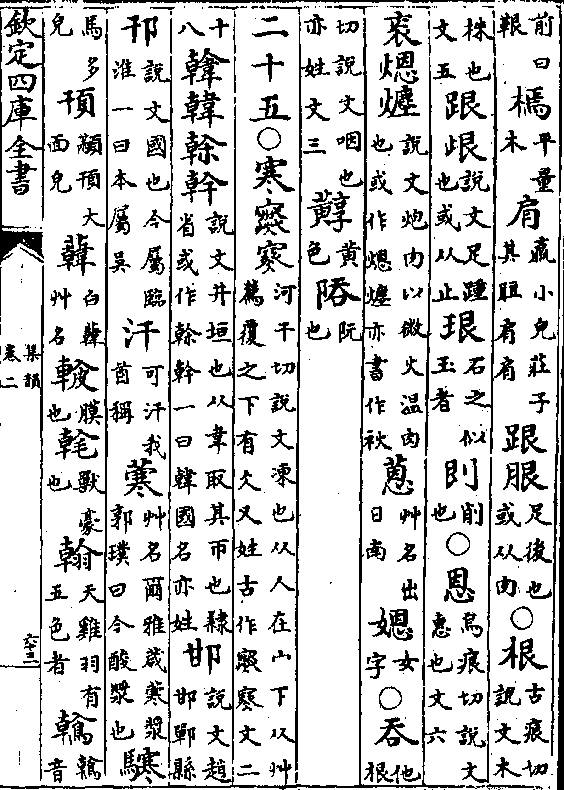 前曰報 平量木 肩羸小皃莊子其脰肩肩 跟䏰足後也或从肉○根古痕切說文木
株也文五 跟𣥦說文足踵也或从止 珢石之似玉者 削也○恩烏痕切說文惠也文六
衮煾㷰說文炮肉以微火温肉也或作煾㷰亦書作䄄 蒽艸名出日南 㛐女字○吞他根
切說文咽也亦姓文三 黃色 阮也
二十五○寒𡫾𡨄河干切說文凍也从人在宀下从艸薦覆之下有仌又姓古作𡫾𡨄文二
十八 韓榦幹說文井垣也从韋取其帀也隸省或作榦幹一曰韓國名亦姓 邯說文趙邯鄲縣
邗說文國也今屬臨淮一曰本屬吳 汗可汗戎酋稱 艸名爾雅葴寒漿郭璞曰今酸漿也
馬多皃 頇顢頇大面皃 艸名 也 獸豪也 翰天雞羽有五色者 鶾鶾音
欽定四庫全書
集韻
卷二
六十三